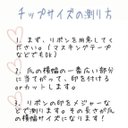 チップサイズの測り方
1. まず、リボンを用意してく
ださい。(マスキングテープ
などでもOK)
2. 爪の横幅の一番広い部分
に当てがって、印を付ける
orカットします。
3. リボンの印をメジャーな
どで測ります。その長さが爪
の横幅サイズになります!